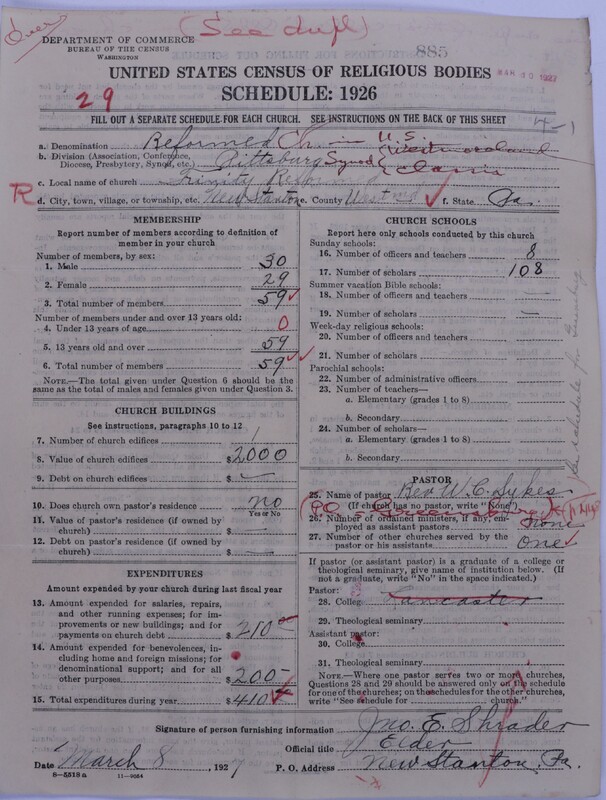 Over
(See dupl)
DEPARTMENT OF COMMERCE
BUREAU OF THE CENSUS
WASHINGTON
885
UNITED STATES CENSUS OF RELIGIOUS BODIES
MAR 10 1927
SCHEDULE: 1926
29
FILL OUT A SEPARATE SCHEDULE FOR EACH CHURCH. SEE INSTRUCTIONS ON THE BACK OF THIS SHEET
4-1
a. Denomination Reformed Ch. in U.S.
b. Division (Association, Conference, Diocese, Presbytery, Synod, etc.) Pittsburg Synod (Westmoreland Classis
c. Local name of church Trinity Reformed
R
d. City, town, village, or township, etc. New Stanton e. County Westmd f. State Pa.
MEMBERSHIP
Report number of members according to definition of member in your church
Number of members, by sex:
1. Male 30
2. Female 29
3. Total number of members 59
Number of members under and over 13 years old:
4. Under 13 years of age 0
5. 13 years old and over 59
6. Total number of members 59
NOTE.—The total given under Question 6 should be the same as the total of males and females given under Question 3.
CHURCH BUILDINGS
See instructions, paragraphs 10 to 12
7. Number of church edifices 1
8. Value of church edifices $2000
9. Debt on church edifices $ —
10. Does church own pastor's residence no
Yes or No
11. Value of pastor's residence (if owned by church) $
12. Debt on pastor's residence (if owned by church) $
EXPENDITURES
Amount expended by your church during last fiscal year
13. Amount expended for salaries, repairs, and other running expenses; for improvements or new buildings; and for payments on church debt $ 210
14. Amount expended for benevolences, including home and foreign missions; for denominational support; and for all other purposes $ 200-
15. Total expenditures during year $ 410
CHURCH SCHOOLS
Report here only schools conducted by this church
Sunday schools:
16. Number of officers and teachers 8
17. Number of scholars 108
Summer vacation Bible schools:
18. Number of officers and teachers —
19. Number of scholars —
Week-day religious schools:
20. Number of officers and teachers
21. Number of scholars
Parochial schools:
22. Number of administrative officers
23. Number of teachers—
a. Elementary (grades 1 to 8)
b. Secondary
24. Number of scholars—
a. Elementary (grades 1 to 8)
b. Secondary
PASTOR
25. Name of pastor Rev W. C. Sykes
(If church has no pastor, write "None")
26. Number of ordained ministers, if any, employed as assistant pastors None
27. Number of other churches served by the pastor or his assistants One
If pastor (or assistant pastor) is a graduate of a college or theological seminary, give name of institution below. (If not a graduate, write "No" in the space indicated.)
Pastor:
28. College Lancaster
29. Theological seminary
Assistant pastor:
30. College
31. Theological seminary
NOTE.—Where one pastor serves two or more churches, Questions 28 and 29 should be answered only on the schedule for one of the churches; on the schedules for the other churches, write "See schedule for church."
Signature of person furnishing information Jno. E. Shrader
Official title Elder
Date March 8, 1927
P. O. Address New Stanton, Pa.
8-5518a
11-9054